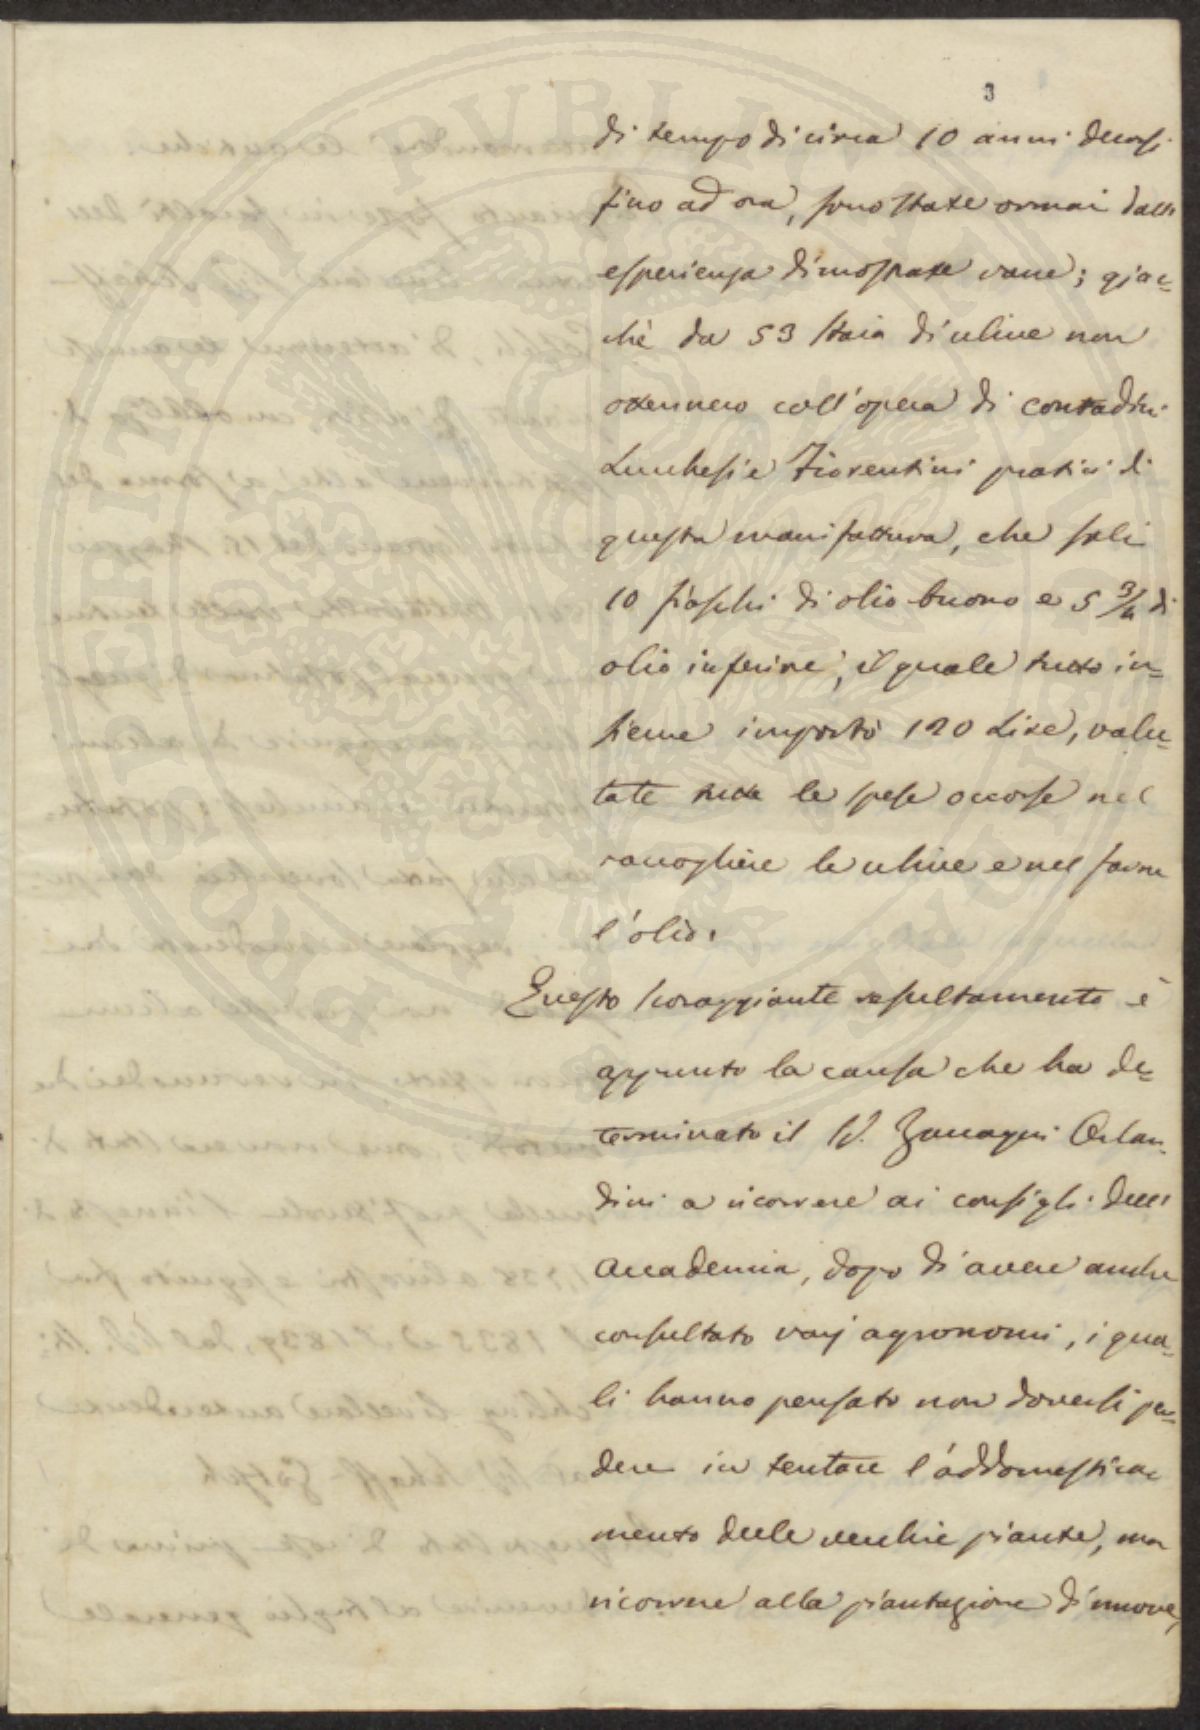 3
di tempo di circa 10 anni decorsi
fino ad ora, sono state ormai dalla
esperienza dimostrate vane; giac=
chè da 53 staia di ulive non
ottennero coll'opera di contadini
Lucchesi e Fiorentini pratici di
questa manifattura, che soli
10 fiaschi di olio buono e 5 3/4 di
olio inferiore, il quale tutto in=
sieme importò 120 Lire, valu=
tate tutte le spese occorse nel
raccogliere le ulive e nel farne
l'olio.
Questo scoraggiante resultamento è
appunto la causa che ha de=
terminato il S. Zuccagni Orlan=
dini a ricorrere ai consigli dell'
Accademia, dopo di avere anche
consultato varj agronomi, i qua=
li hanno pensato non doversi per=
dere in tentare l'addomestica=
mento delle vecchie piante, ma
ricorrere alla piantagione di nuove,
PROSPERITATI PVBLICAE AVGENDAE